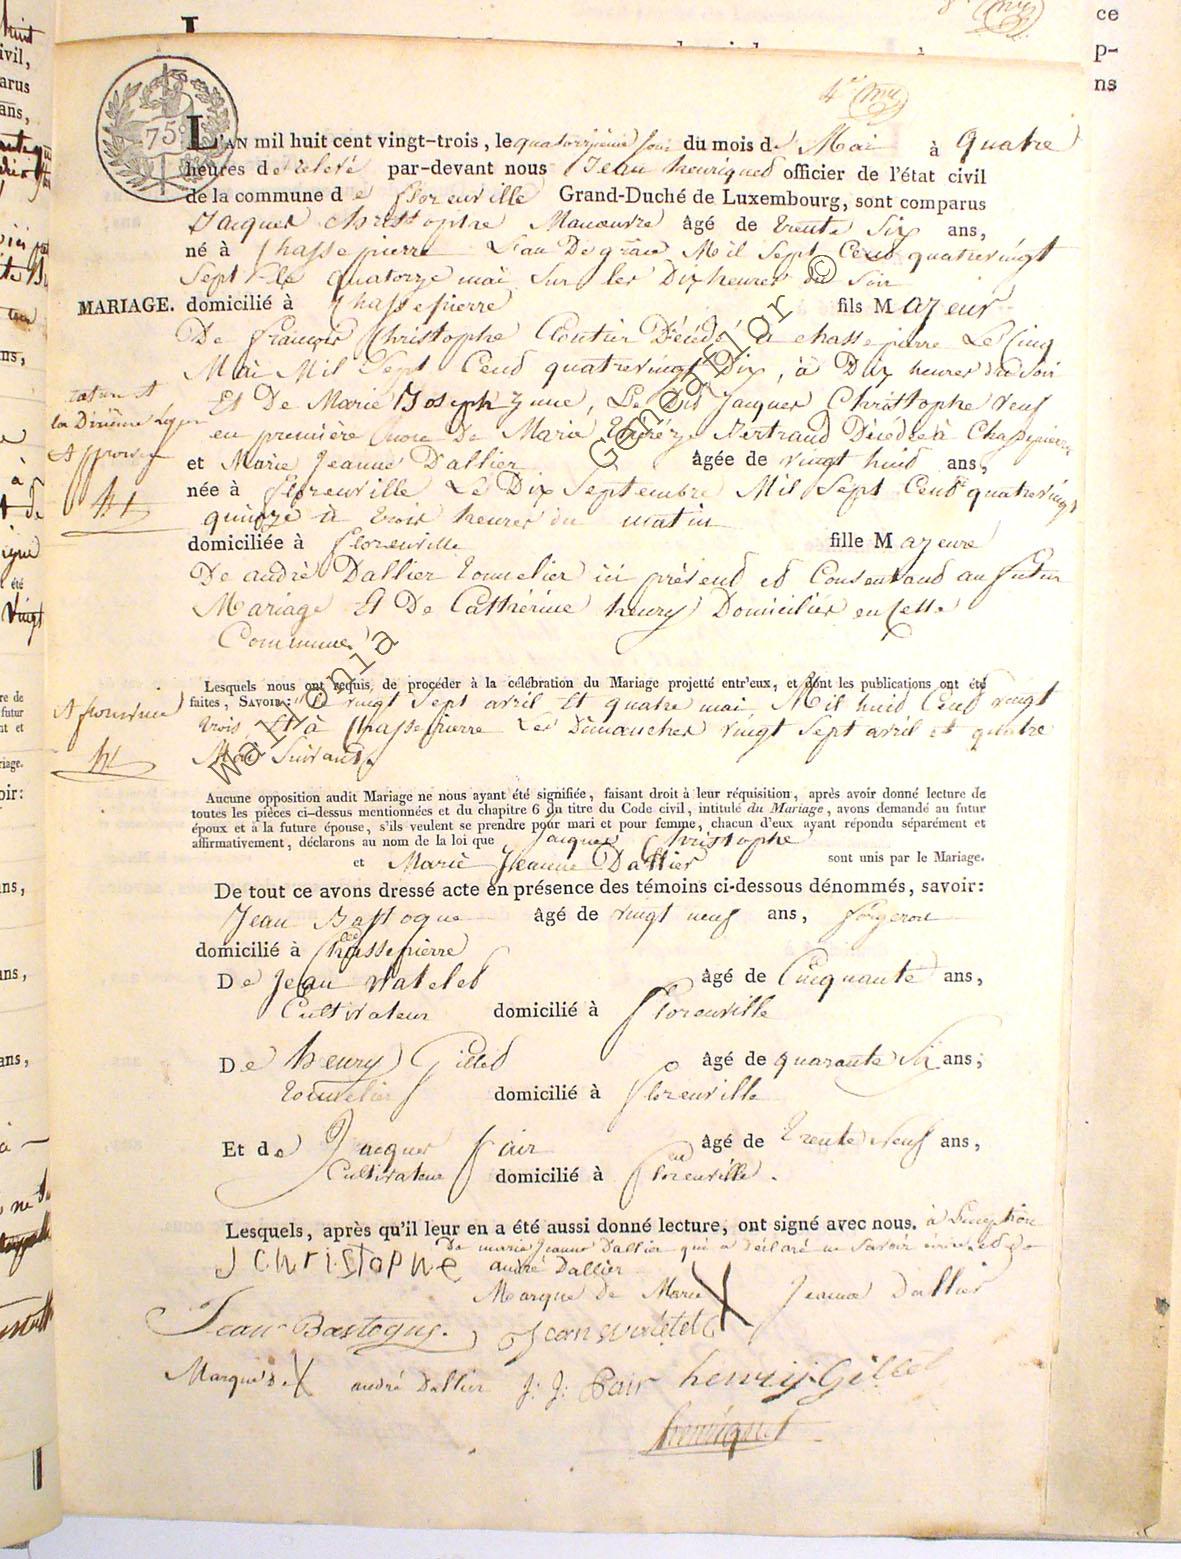 4e
75c
L'AN mil huit cent vingt-trois, le quatorzieme jour du mois de Mai à Quatre
heures de relevé par-devant nous Jean henriquet officier de l'état civil
de la commune de florenville Grand-Duché de Luxembourg, sont comparus
Jacques Christophe Manoeuvre âgé de trente Six ans,
né à Chassepierre L'an De grace Mil Sept Cent quatrevingt
Sept le quatorze mai sur les Dix heures du Soir
MARIAGE. domicilié à Chassepierre fils Majeur
De françois Christophe Cloutier Décédé à chassepierre Le Cinq
Mai Mil Sept Cent quatrevingt Dix, à Dix heures du Soir
Et De Marie Joseph, Le Dit Jacques Christophe Veuf
en première noce De Marie Thérèze Bertrand Décédée à Chassepierre
et Marie Jeanne Dallier âgée de vingt huit ans,
née à florenville Le Dix Septembre Mil Sept Cent quatrevingt
quinze à trois heures du matin
domiciliée à florenville fille Majeure
De andré Dallier tonnelier ici présent et Consentant au futur
Mariage Et De Cathérine henry Domiciliés en Cette
Commune
Approuvé
ht
Lesquels nous ont requis de procéder à la célébration du Mariage projetté entr'eux, et dont les publications ont été
faites, SAVOIR: vingt Sept avril Et quatre mai Mil huit Cent vingt
trois, Et à Chassepierre Les Dimanches vingt Sept avril et quatre
Mai Suivants
ht
Aucune opposition audit Mariage ne nous ayant été signifiée, faisant droit à leur réquisition, après avoir donné lecture de
toutes les pièces ci-dessus mentionnées et du chapitre 6 du titre du Code civil, intitulé du Mariage, avons demandé au futur
époux et à la future épouse, s'ils veulent se prendre pour mari et pour femme, chacun d'eux ayant répondu séparément et
affirmativement, déclarons au nom de la loi que Jacques Christophe
et Marie Jeanne Dallier sont unis par le Mariage.
De tout ce avons dressé acte en présence des témoins ci-dessous dénommés, savoir:
Jean Bastogne âgé de vingt neuf ans, forgeron
domicilié à Chassepierre
De Jean Watelet âgé de Cinquante ans,
Cultivateur domicilié à florenville
De henry Gillet âgé de quarante Six ans,
tonnelier domicilié à florenville
Et de Jacques Pair âgé de trente Neuf ans,
Cultivateur domicilié à florenville.
Lesquels, après qu'il leur en a été aussi donné lecture, ont signé avec nous. à L'exception
De marie Jeanne Dallier qui a déclaré ne Savoir écrire et De
J CHRISTOPHE andré Dallier
Marque De Marie X Jeanne Dallier
Jean Bastogne. Jean Watelet
Marque De X andré Dallier J: J: Pair henry Gillet
henriquet
Wallonia Genea Flor ©